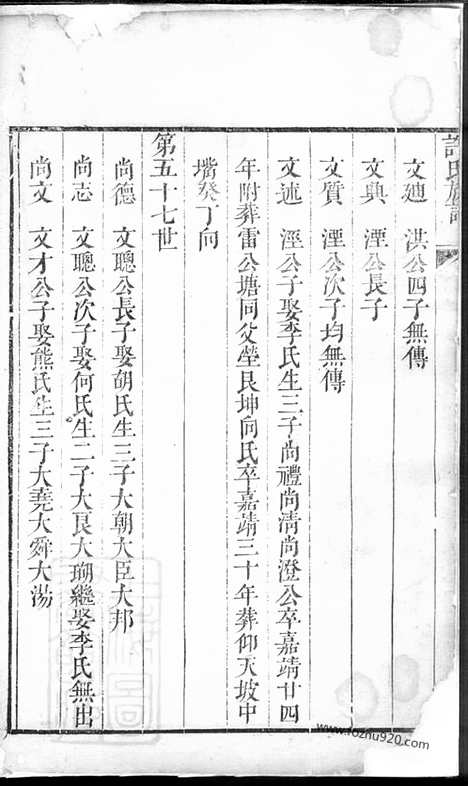 許氏族譜
文廸　洪公四子無傳
文典　湮公長子
文質　湮公次子均無傳
文述　涇公子娶李氏生三子尚禮尚清尚澄公卒嘉靖廿四
年附葬雷公塘同父塋艮坤向氏卒嘉靖三十年葬仰天坡中
嘴癸丁向
第五十七世
尚德　文聰公長子娶胡氏生三子大朝大臣大邦
尚志　文聰公次子娶何氏生二子大良大瑚繼娶李氏無出
尚文　文才公子娶熊氏生三子大堯大舜大湯
www.fozhu920.com